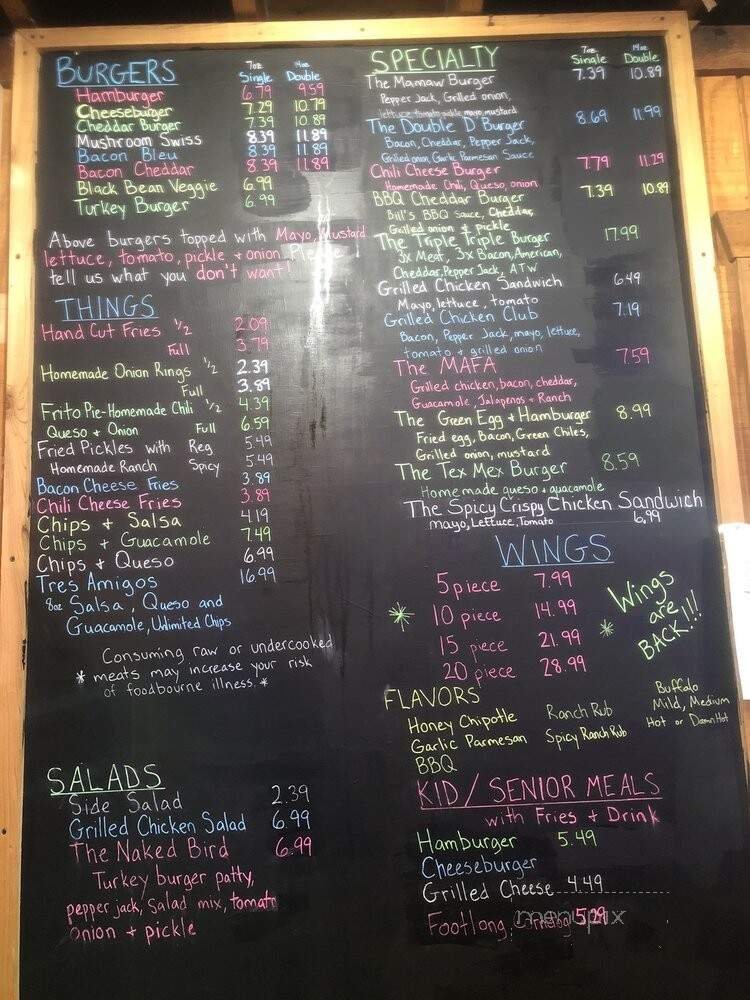 BURGERS
7oz Single 14oz Double
Hamburger 6.79 9.59
Cheeseburger 7.29 10.79
Cheddar Burger 7.39 10.89
Mushroom Swiss 8.39 11.89
Bacon Bleu 8.39 11.89
Bacon Cheddar 8.39 11.89
Black Bean Veggie 6.99
Turkey Burger 6.99
Above burgers topped with Mayo, Mustard
lettuce, tomato, pickle + onion Please
tell us what you don't want!
THINGS
Hand Cut Fries 1/2 2.09
Full 3.79
Homemade Onion Rings 1/2 2.39
Full 3.89
Frito Pie-Homemade Chili 1/2 4.39
Queso + Onion Full 6.59
Fried Pickles with Reg 5.49
Homemade Ranch Spicy 5.49
Bacon Cheese Fries 3.89
Chili Cheese Fries 3.89
Chips + Salsa 4.19
Chips + Guacamole 7.49
Chips + Queso 6.99
Tres Amigos 16.99
8oz Salsa, Queso and
Guacamole, Unlimited Chips
Consuming raw or undercooked
* meats may increase your risk
of foodbourne illness. *
SALADS
Side Salad 2.39
Grilled Chicken Salad 6.99
The Naked Bird 6.99
Turkey burger patty,
pepper jack, salad mix, tomato
onion + pickle
SPECIALTY
7oz Single 14oz Double
The Mamaw Burger 7.39 10.89
Pepper Jack, Grilled onion,
lettuce, tomato, pickle, mayo, mustard
The Double D Burger 8.69 11.99
Bacon, Cheddar, Pepper Jack,
Grilled onion, Garlic Parmesan Sauce
Chili Cheese Burger 7.79 11.29
Homemade Chili, Queso, onion
BBQ Cheddar Burger 7.39 10.89
Bill's BBQ Sauce, Cheddar,
Grilled onion + pickle
The Triple Triple Burger 17.99
3x Meat, 3x Bacon, American,
Cheddar, Pepper Jack, ATW
Grilled Chicken Sandwich 6.49
Mayo, lettuce, tomato
Grilled Chicken Club 7.19
Bacon, Pepper Jack, mayo, lettuce,
tomato + grilled onion
The MAFA 7.59
Grilled chicken, bacon, cheddar,
Guacamole, Jalapenos + Ranch
The Green Egg + Hamburger 8.99
Fried egg, Bacon, Green Chiles,
Grilled onion, mustard
The Tex Mex Burger 8.59
Homemade queso + guacamole
The Spicy Crispy Chicken Sandwich
mayo, Lettuce, Tomato 6.99
WINGS
5 piece 7.99
10 piece 14.99
15 piece 21.99
20 piece 28.99
* Wings
are
BACK!!! *
FLAVORS
Honey Chipotle Ranch Rub Buffalo
Garlic Parmesan Spicy Ranch Rub Mild, Medium
BBQ Hot or Damn Hot
KID/SENIOR MEALS
with Fries + Drink
Hamburger 5.49
Cheeseburger
Grilled Cheese 4.49
Footlong Corndog 5.29
menupix